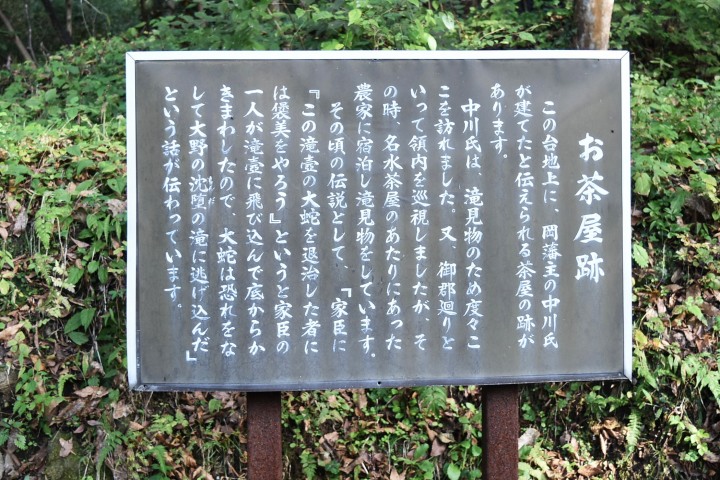 お茶屋跡
この台地上に、岡藩主の中川氏
が建てたと伝えられる茶屋の跡が
あります。
中川氏は、滝見物のため度々こ
こを訪れました。又、御郡廻りと
いって領内を巡視しましたが、そ
の時、名水茶屋のあたりにあった
農家に宿泊し滝見物をしています。
その頃の伝説として、『家臣に
『この滝壺の大蛇を退治した者に
は褒美をやろう』というと家臣の
一人が滝壺に飛び込んで底からか
きまわしたので、大蛇は恐れをな
して大野の沈堕の滝に逃げ込んだ』
という話が伝わっています。